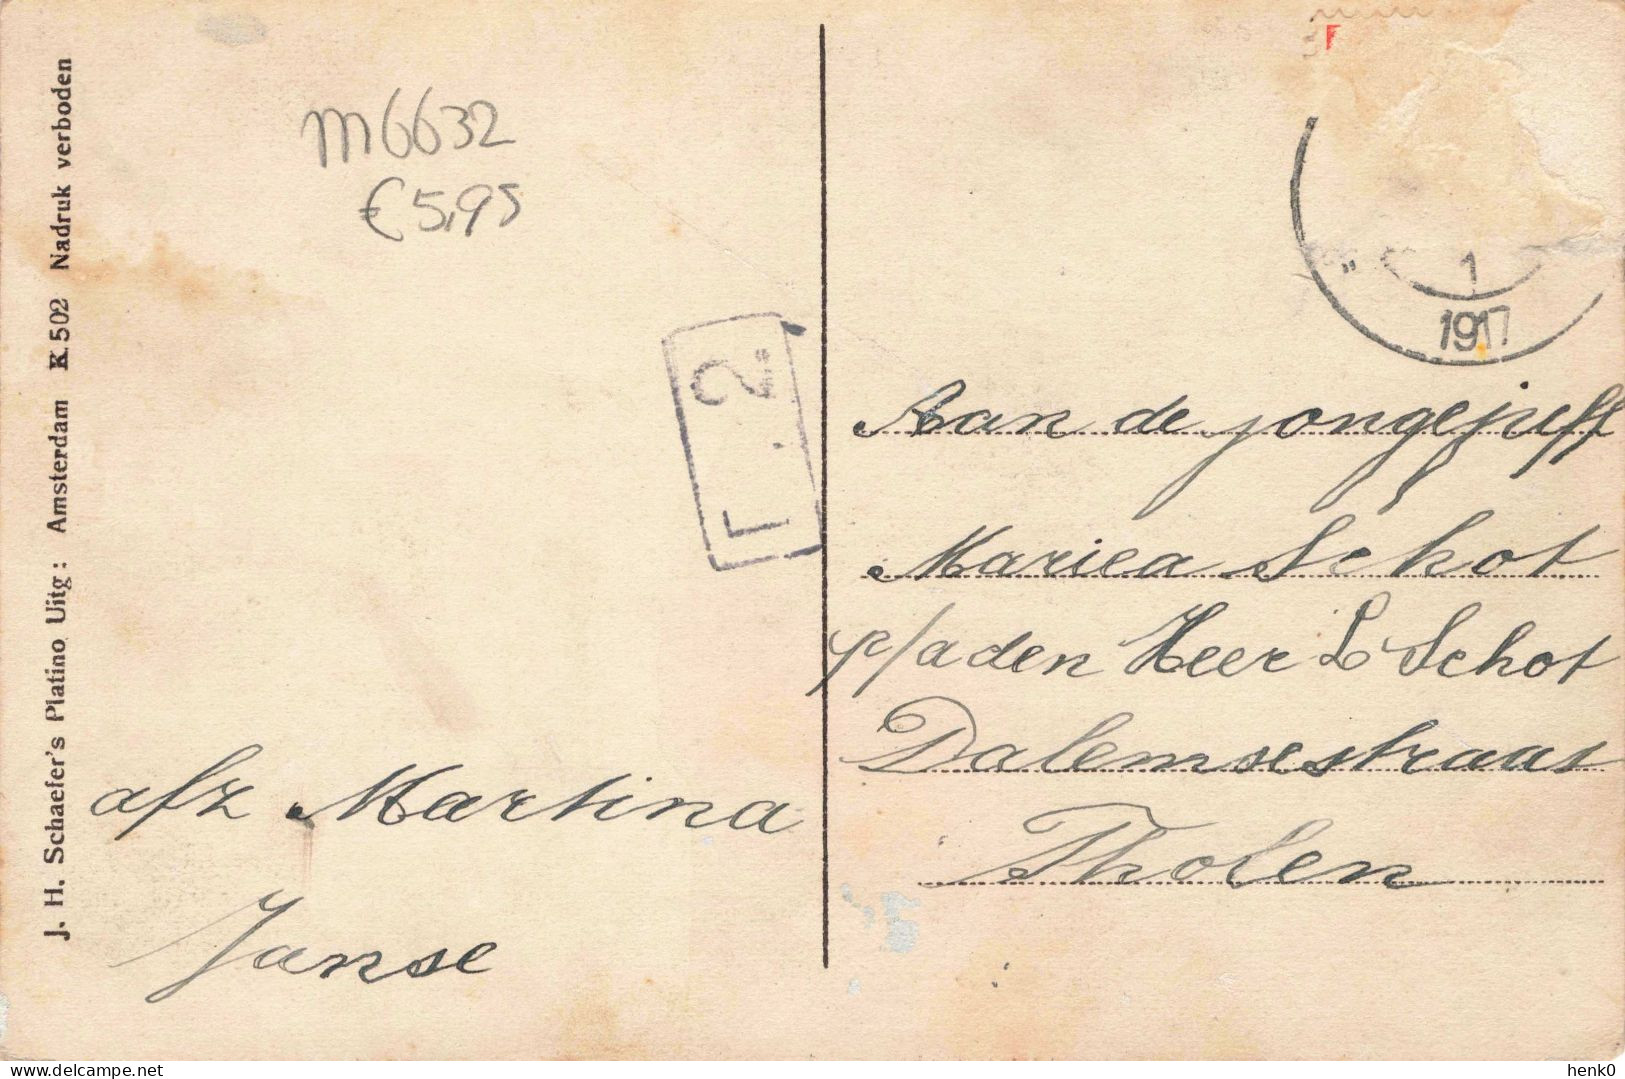 J. H. Schaefer's Platino Uitg: Amsterdam K.502 Nadruk verboden
m6632
€5,95
L. 2.
1
1917
Aan de jongejuff
Mariea Schot
p/a den Heer L Schot
Dalemsestraat
Tholen
afz Martina
Janse
delcampe.net
henk0